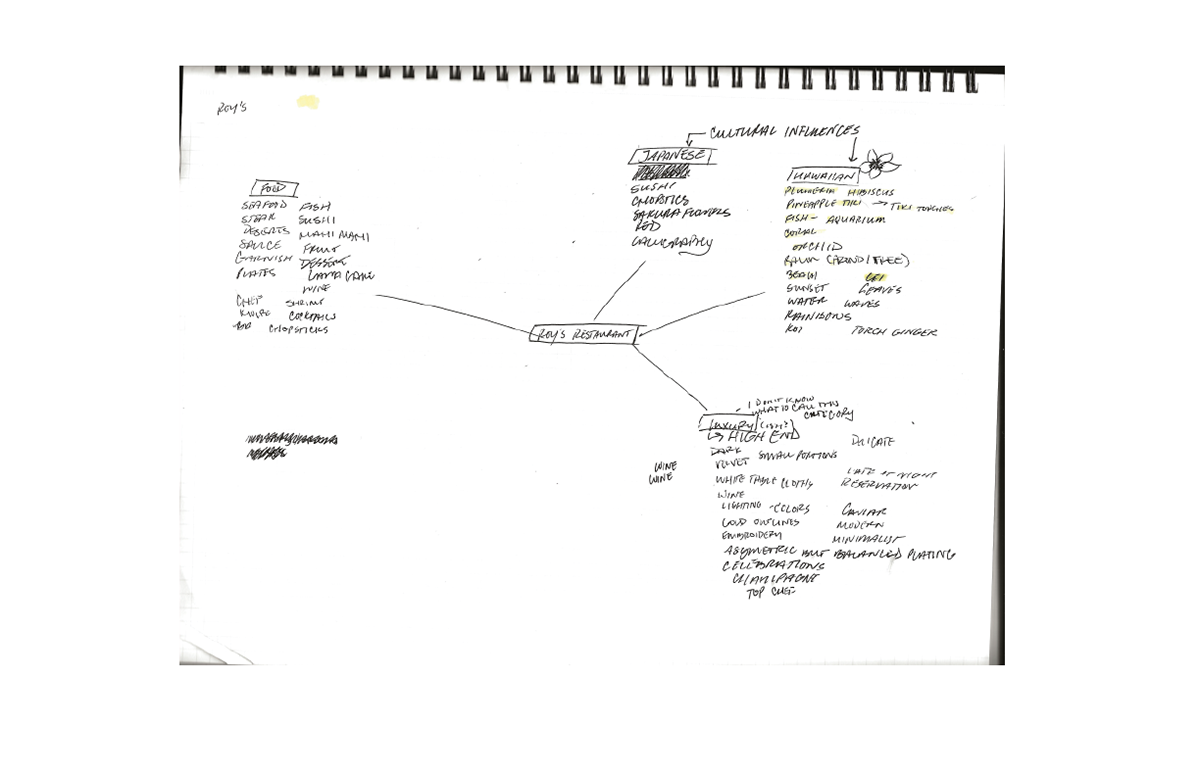 ROY'S
CULTURAL INFLUENCES
JAPANESE
SUSHI
CHOPSTICS
SAKURA FLOWERS
RED
CALLIGRAPHY
HAWAIIAN
PLUMERIA HIBISCUS
PINEAPPLE TIKI → TIKI TORCHES
FISH - AQUARIUM
CORAL
ORCHID
PALM (FROND/TREE)
BEACH LEI
SUNSET LEAVES
WATER WAVES
RAINBOWS
KOI TORCH GINGER
FOOD
SEAFOOD FISH
STEAK SUSHI
DESSERTS MAHI MAHI
SAUCE FRUIT
GARNISH DESSERT
PLATES LAVA CAKE
WINE
CHEF SHRIMP
KNIFE COCKTAILS
CHOPSTICKS
ROY'S RESTAURANT
I DON'T KNOW
WHAT TO CALL THIS
CATEGORY
LUXURY
↳ HIGH END DELICATE
DARK
VELVET SMALL PORTIONS
WINE
WINE
WHITE TABLE CLOTH LATE AT NIGHT
RESERVATION
WINE
LIGHTING - COLORS CAVIAR
GOLD OUTLINES MODERN
EMBROIDERY MINIMALIST
ASYMETRIC BUT BALANCED PLATING
CELEBRATIONS
CHAMPAGNE
TOP CHEF